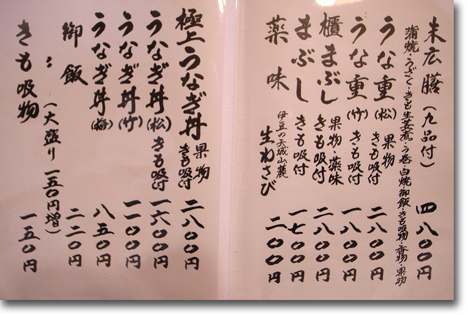 末広膳（九品付） 四八〇〇円
蒲焼・うざく・きも生姜煮・う巻
白焼・御飯・きも吸物・香物・果物
うな重（松） 果物 きも吸付 二八〇〇円
うな重（竹） きも吸付 一八〇〇円
櫃まぶし 果物・薬味 きも吸付 二八〇〇円
まぶし きも吸付 一七〇〇円
薬味 伊豆の天城山麓 生わさび 二〇〇円
極上うなぎ丼 果物 きも吸付 二八〇〇円
うなぎ丼（松） きも吸付 一六〇〇円
うなぎ丼（竹） 一一〇〇円
うなぎ丼（梅） 八五〇円
御飯 二二〇円
〃 （大盛り一五〇円増）
きも吸物 一五〇円